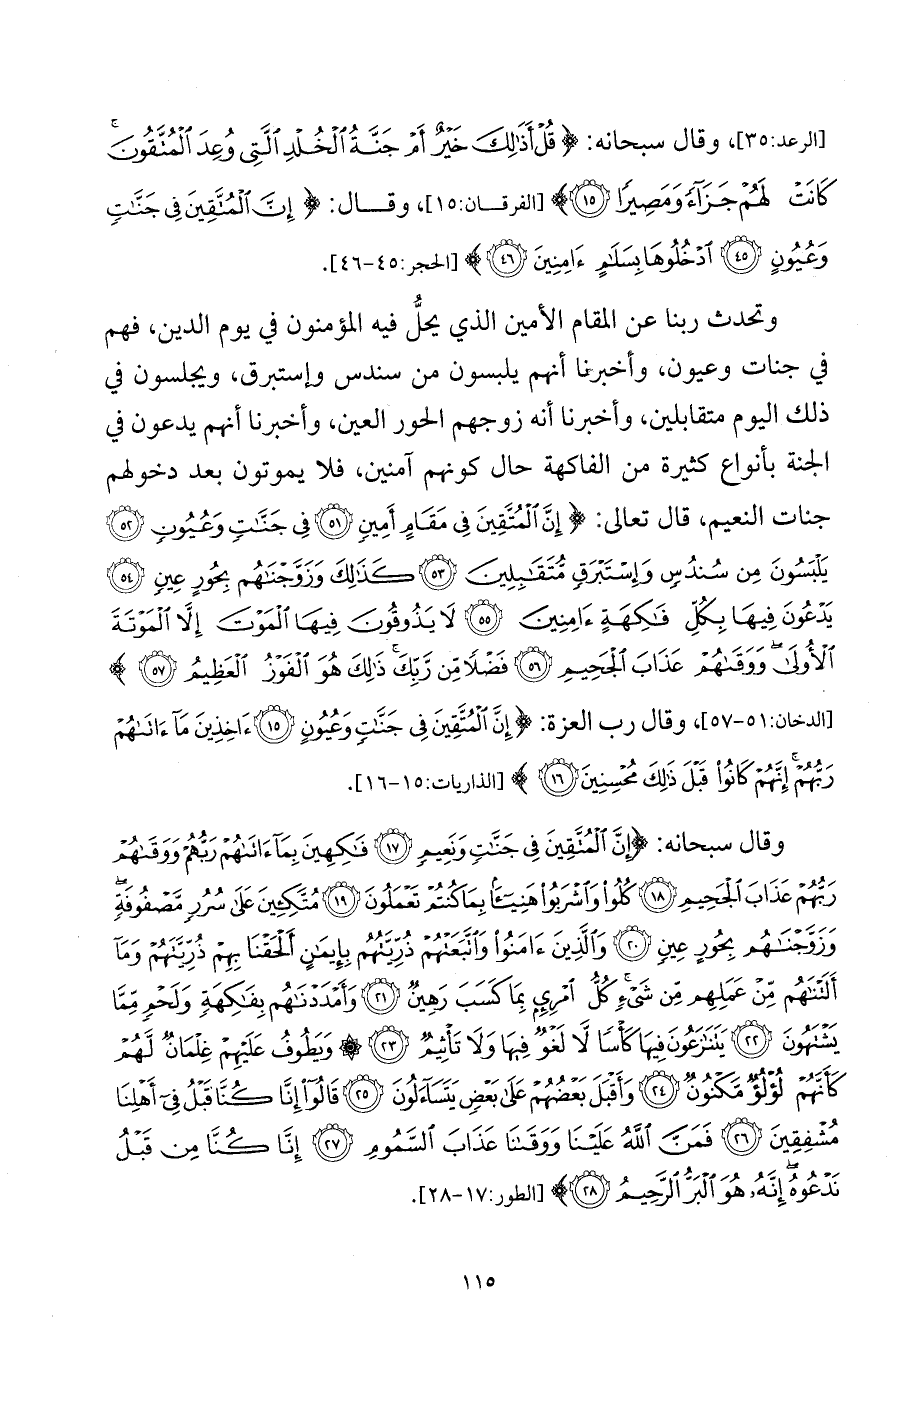 [الرعد:٣٥]، وقال سبحانه: ﴿ قُلْ أَذَٰلِكَ خَيْرٌ أَمْ جَنَّةُ ٱلْخُلْدِ ٱلَّتِى وُعِدَ ٱلْمُتَّقُونَ ۚ
كَانَتْ لَهُمْ جَزَآءً وَمَصِيرًا ١٥ ﴾ [الفرقان:١٥]، وقال: ﴿ إِنَّ ٱلْمُتَّقِينَ فِى جَنَّٰتٍ
وَعُيُونٍ ٤٥ ٱدْخُلُوهَا بِسَلَٰمٍ ءَامِنِينَ ٤٦ ﴾ [الحجر:٤٥-٤٦].
وتحدث ربنا عن المقام الأمين الذي يحلُّ فيه المؤمنون في يوم الدين، فهم
في جنات وعيون، وأخبرنا أنهم يلبسون من سندس وإستبرق، ويجلسون في
ذلك اليوم متقابلين، وأخبرنا أنه زوجهم الحور العين، وأخبرنا أنهم يدعون في
الجنة بأنواع كثيرة من الفاكهة حال كونهم آمنين، فلا يموتون بعد دخولهم
جنات النعيم، قال تعالى: ﴿ إِنَّ ٱلْمُتَّقِينَ فِى مَقَامٍ أَمِينٍ ٥١ فِى جَنَّٰتٍ وَعُيُونٍ ٥٢
يَلْبَسُونَ مِن سُندُسٍ وَإِسْتَبْرَقٍ مُّتَقَٰبِلِينَ ٥٣ كَذَٰلِكَ وَزَوَّجْنَٰهُم بِحُورٍ عِينٍ ٥٤
يَدْعُونَ فِيهَا بِكُلِّ فَٰكِهَةٍ ءَامِنِينَ ٥٥ لَا يَذُوقُونَ فِيهَا ٱلْمَوْتَ إِلَّا ٱلْمَوْتَةَ
ٱلْأُولَىٰ ۖ وَوَقَىٰهُمْ عَذَابَ ٱلْجَحِيمِ ٥٦ فَضْلًا مِّن رَّبِّكَ ۚ ذَٰلِكَ هُوَ ٱلْفَوْزُ ٱلْعَظِيمُ ٥٧ ﴾
[الدخان:٥١-٥٧]، وقال رب العزة: ﴿ إِنَّ ٱلْمُتَّقِينَ فِى جَنَّٰتٍ وَعُيُونٍ ١٥ ءَاخِذِينَ مَآ ءَاتَىٰهُمْ
رَبُّهُمْ ۚ إِنَّهُمْ كَانُوا۟ قَبْلَ ذَٰلِكَ مُحْسِنِينَ ١٦ ﴾ [الذاريات:١٥-١٦].
وقال سبحانه: ﴿ إِنَّ ٱلْمُتَّقِينَ فِى جَنَّٰتٍ وَنَعِيمٍ ١٧ فَٰكِهِينَ بِمَآ ءَاتَىٰهُمْ رَبُّهُمْ وَوَقَىٰهُمْ
رَبُّهُمْ عَذَابَ ٱلْجَحِيمِ ١٨ كُلُوا۟ وَٱشْرَبُوا۟ هَنِيٓـًٔۢا بِمَا كُنتُمْ تَعْمَلُونَ ١٩ مُتَّكِـِٔينَ عَلَىٰ سُرُرٍ مَّصْفُوفَةٍ ۖ
وَزَوَّجْنَٰهُم بِحُورٍ عِينٍ ٢٠ وَٱلَّذِينَ ءَامَنُوا۟ وَٱتَّبَعَتْهُمْ ذُرِّيَّتُهُم بِإِيمَٰنٍ أَلْحَقْنَا بِهِمْ ذُرِّيَّتَهُمْ وَمَآ
أَلَتْنَٰهُم مِّنْ عَمَلِهِم مِّن شَىْءٍ ۚ كُلُّ ٱمْرِئٍۭ بِمَا كَسَبَ رَهِينٌ ٢١ وَأَمْدَدْنَٰهُم بِفَٰكِهَةٍ وَلَحْمٍ مِّمَّا
يَشْتَهُونَ ٢٢ يَتَنَٰزَعُونَ فِيهَا كَأْسًا لَّا لَغْوٌ فِيهَا وَلَا تَأْثِيمٌ ٢٣ ۞ وَيَطُوفُ عَلَيْهِمْ غِلْمَانٌ لَّهُمْ
كَأَنَّهُمْ لُؤْلُؤٌ مَّكْنُونٌ ٢٤ وَأَقْبَلَ بَعْضُهُمْ عَلَىٰ بَعْضٍ يَتَسَآءَلُونَ ٢٥ قَالُوٓا۟ إِنَّا كُنَّا قَبْلُ فِىٓ أَهْلِنَا
مُشْفِقِينَ ٢٦ فَمَنَّ ٱللَّهُ عَلَيْنَا وَوَقَىٰنَا عَذَابَ ٱلسَّمُومِ ٢٧ إِنَّا كُنَّا مِن قَبْلُ
نَدْعُوهُ ۖ إِنَّهُۥ هُوَ ٱلْبَرُّ ٱلرَّحِيمُ ٢٨ ﴾ [الطور:١٧-٢٨].
١١٥